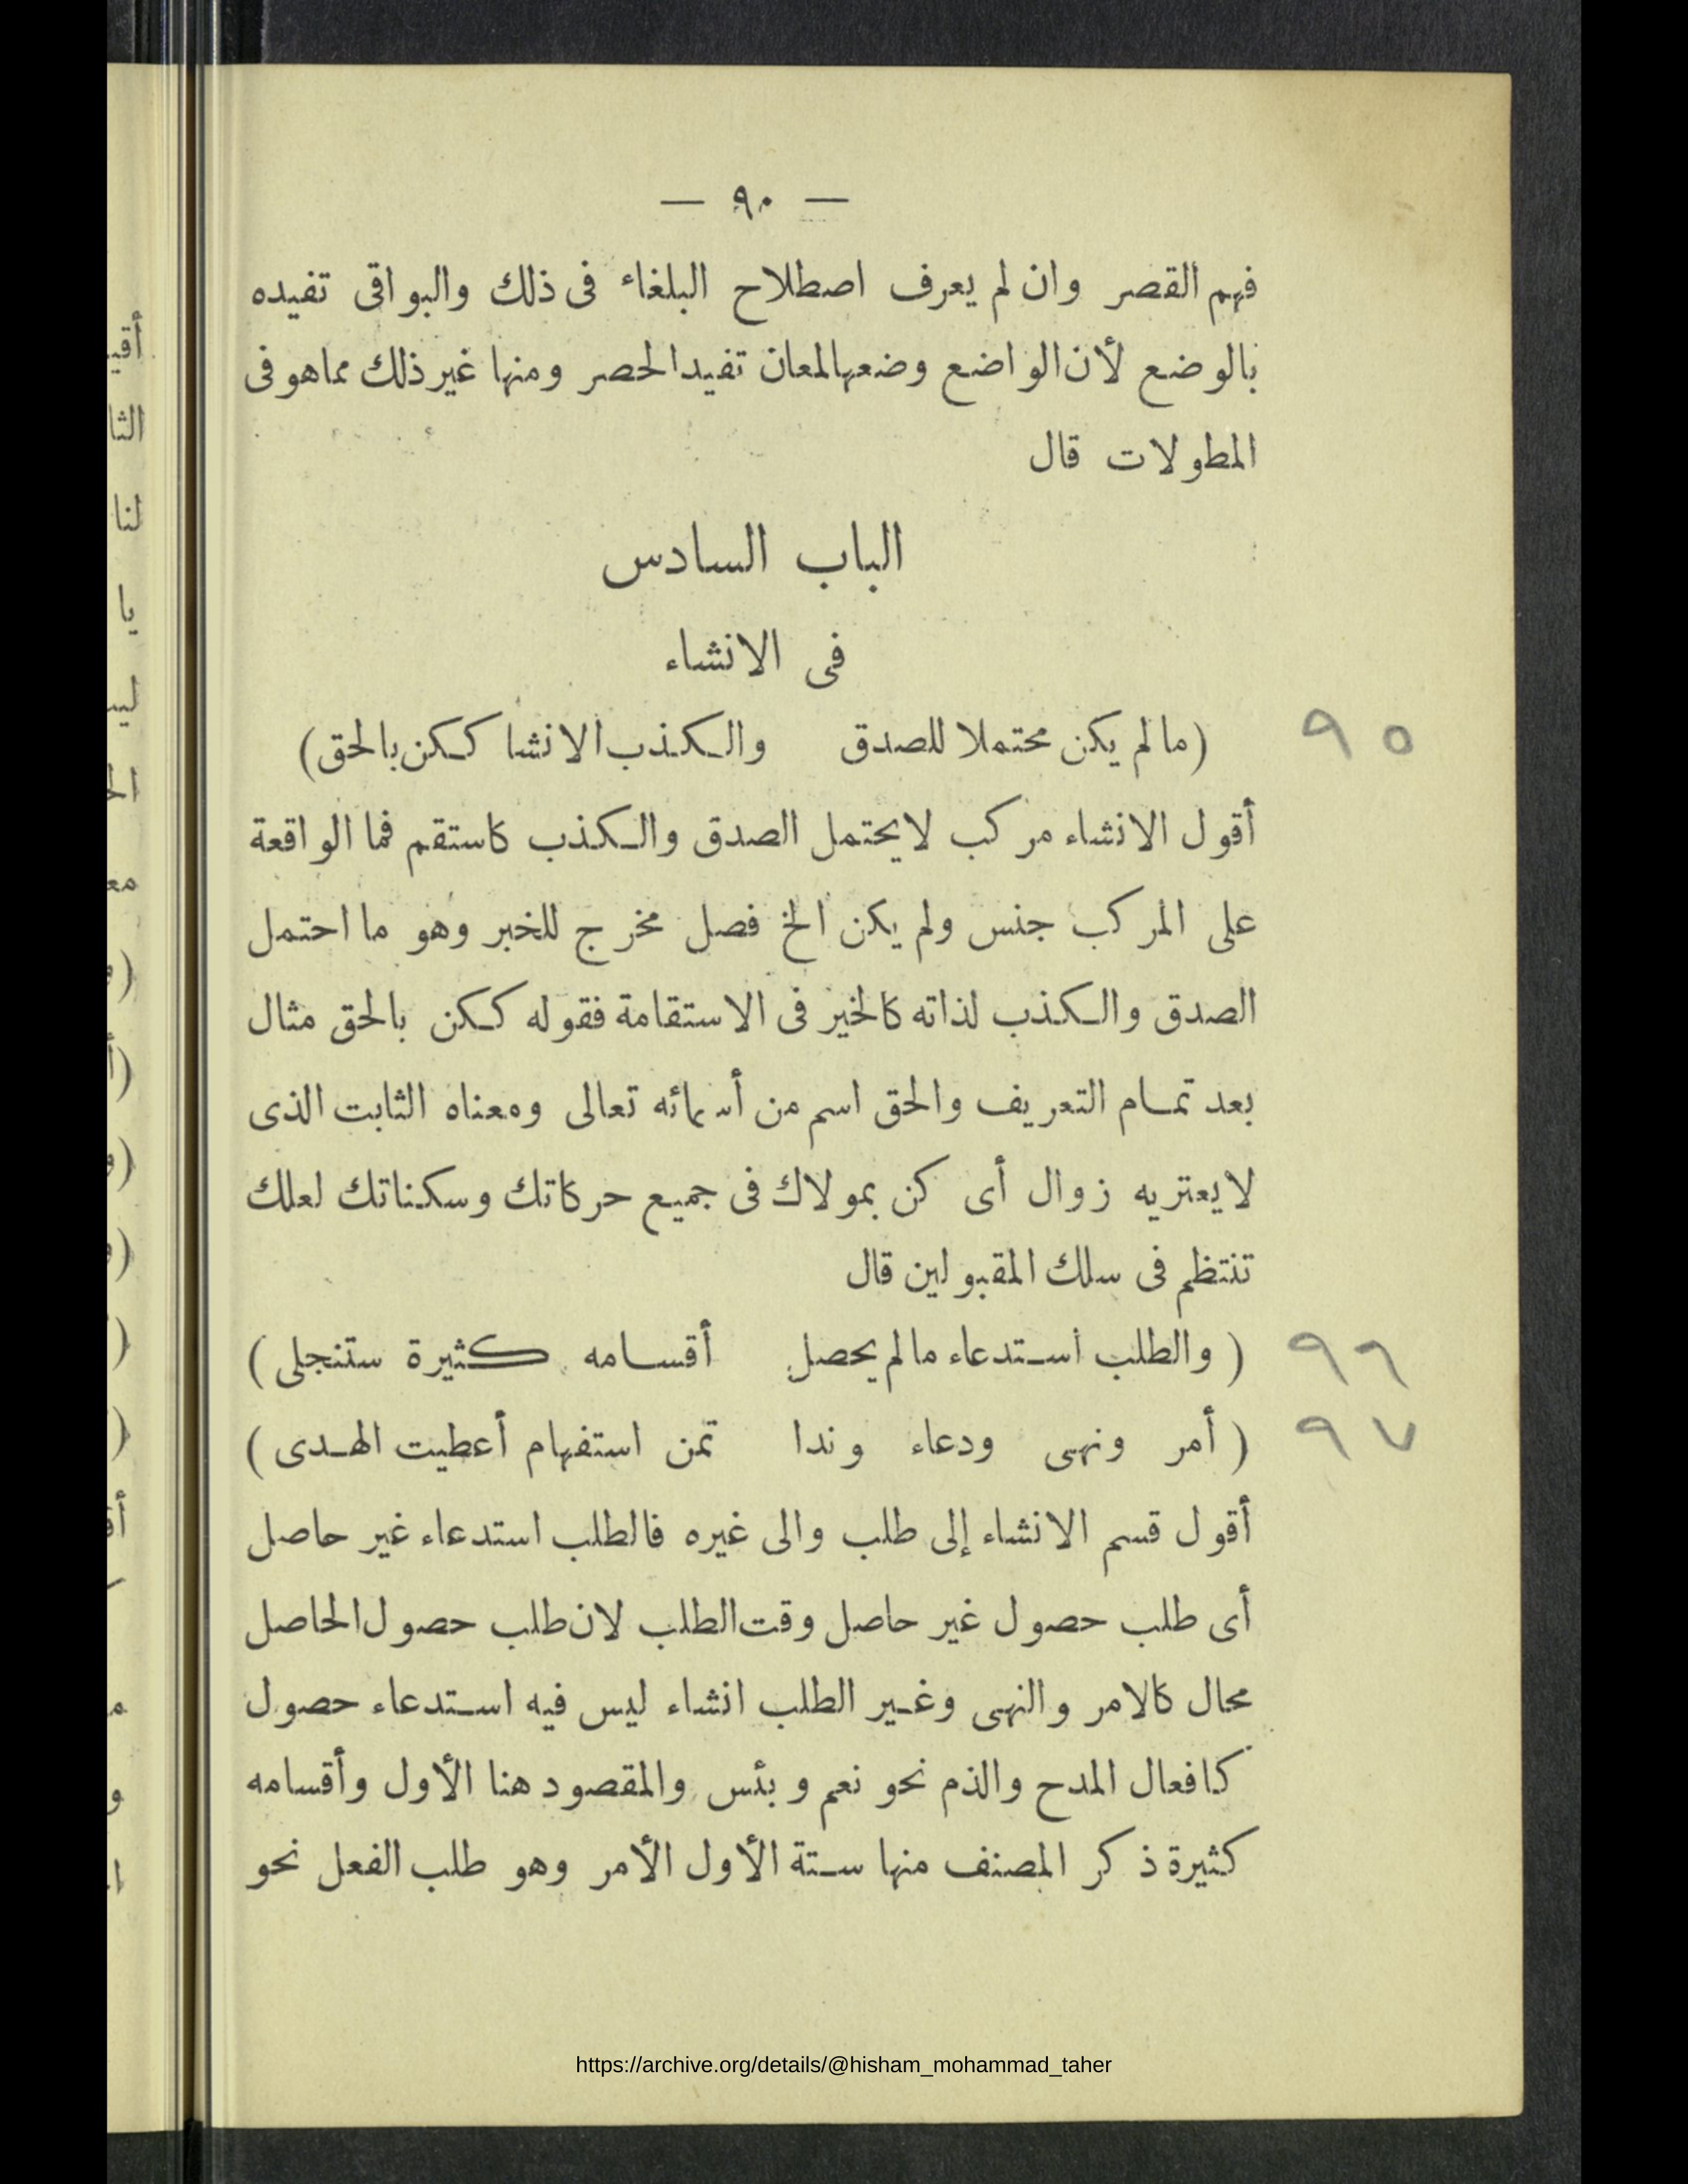 — ٩٠ —
فهم القصر وان لم يعرف اصطلاح البلغاء فى ذلك والبواقى تفيده
بالوضع لأن الواضع وضعها لمعان تفيد الحصر ومنها غير ذلك مما هو فى
المطولات قال
الباب السادس
فى الانشاء
(ما لم يكن محتملا للصدق والكذب الانشا ككن بالحق) ٩٥
أقول الانشاء مركب لا يحتمل الصدق والكذب كاستقم فما الواقعة
على المركب جنس ولم يكن الخ فصل مخرج للخبر وهو ما احتمل
الصدق والكذب لذاته كالخير فى الاستقامة فقوله ككن بالحق مثال
بعد تمام التعريف والحق اسم من أسمائه تعالى ومعناه الثابت الذى
لا يعتريه زوال أى كن بمولاك فى جميع حركاتك وسكناتك لعلك
تنتظم فى سلك المقبولين قال
(والطلب استدعاء ما لم يحصل أقسامه كثيرة ستنجلى) ٩٦
(أمر ونهى ودعاء وندا تمن استفهام أعطيت الهدى) ٩٧
أقول قسم الانشاء إلى طلب والى غيره فالطلب استدعاء غير حاصل
أى طلب حصول غير حاصل وقت الطلب لان طلب حصول الحاصل
محال كالامر والنهى وغير الطلب انشاء ليس فيه استدعاء حصول
كافعال المدح والذم نحو نعم وبئس والمقصود هنا الأول وأقسامه
كثيرة ذكر المصنف منها ستة الأول الأمر وهو طلب الفعل نحو
https://archive.org/details/@hisham_mohammad_taher